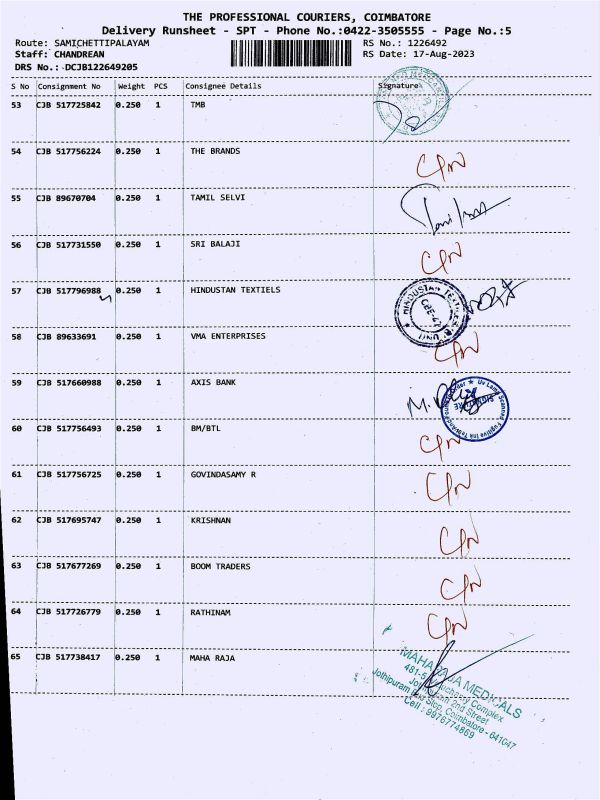 THE PROFESSIONAL COURIERS, COIMBATORE
Delivery Runsheet - SPT - Phone No.:0422-3505555 - Page No.:5
Route: SAMICHETTIPALAYAM RS No.: 1226492
Staff: CHANDREAN RS Date: 17-Aug-2023
DRS No.: DCJB122649205
S No Consignment No Weight PCS Consignee Details Signature
53 CJB 517725842 0.250 1 TMB
54 CJB 517756224 0.250 1 THE BRANDS
55 CJB 89670704 0.250 1 TAMIL SELVI
56 CJB 517731550 0.250 1 SRI BALAJI
57 CJB 517796988 0.250 1 HINDUSTAN TEXTIELS
HINDUSTAN TEXTILES
UNIT
CBE-47
58 CJB 89633691 0.250 1 VMA ENTERPRISES
59 CJB 517660988 0.250 1 AXIS BANK
60 CJB 517756493 0.250 1 BM/BTL
61 CJB 517756725 0.250 1 GOVINDASAMY R
62 CJB 517695747 0.250 1 KRISHNAN
63 CJB 517677269 0.250 1 BOOM TRADERS
64 CJB 517726779 0.250 1 RATHINAM
65 CJB 517738417 0.250 1 MAHA RAJA
MAHARAJA MEDICALS
Complex
2nd Street
Jothipuram Stop, Coimbatore - 641047
Cell : 9976774869